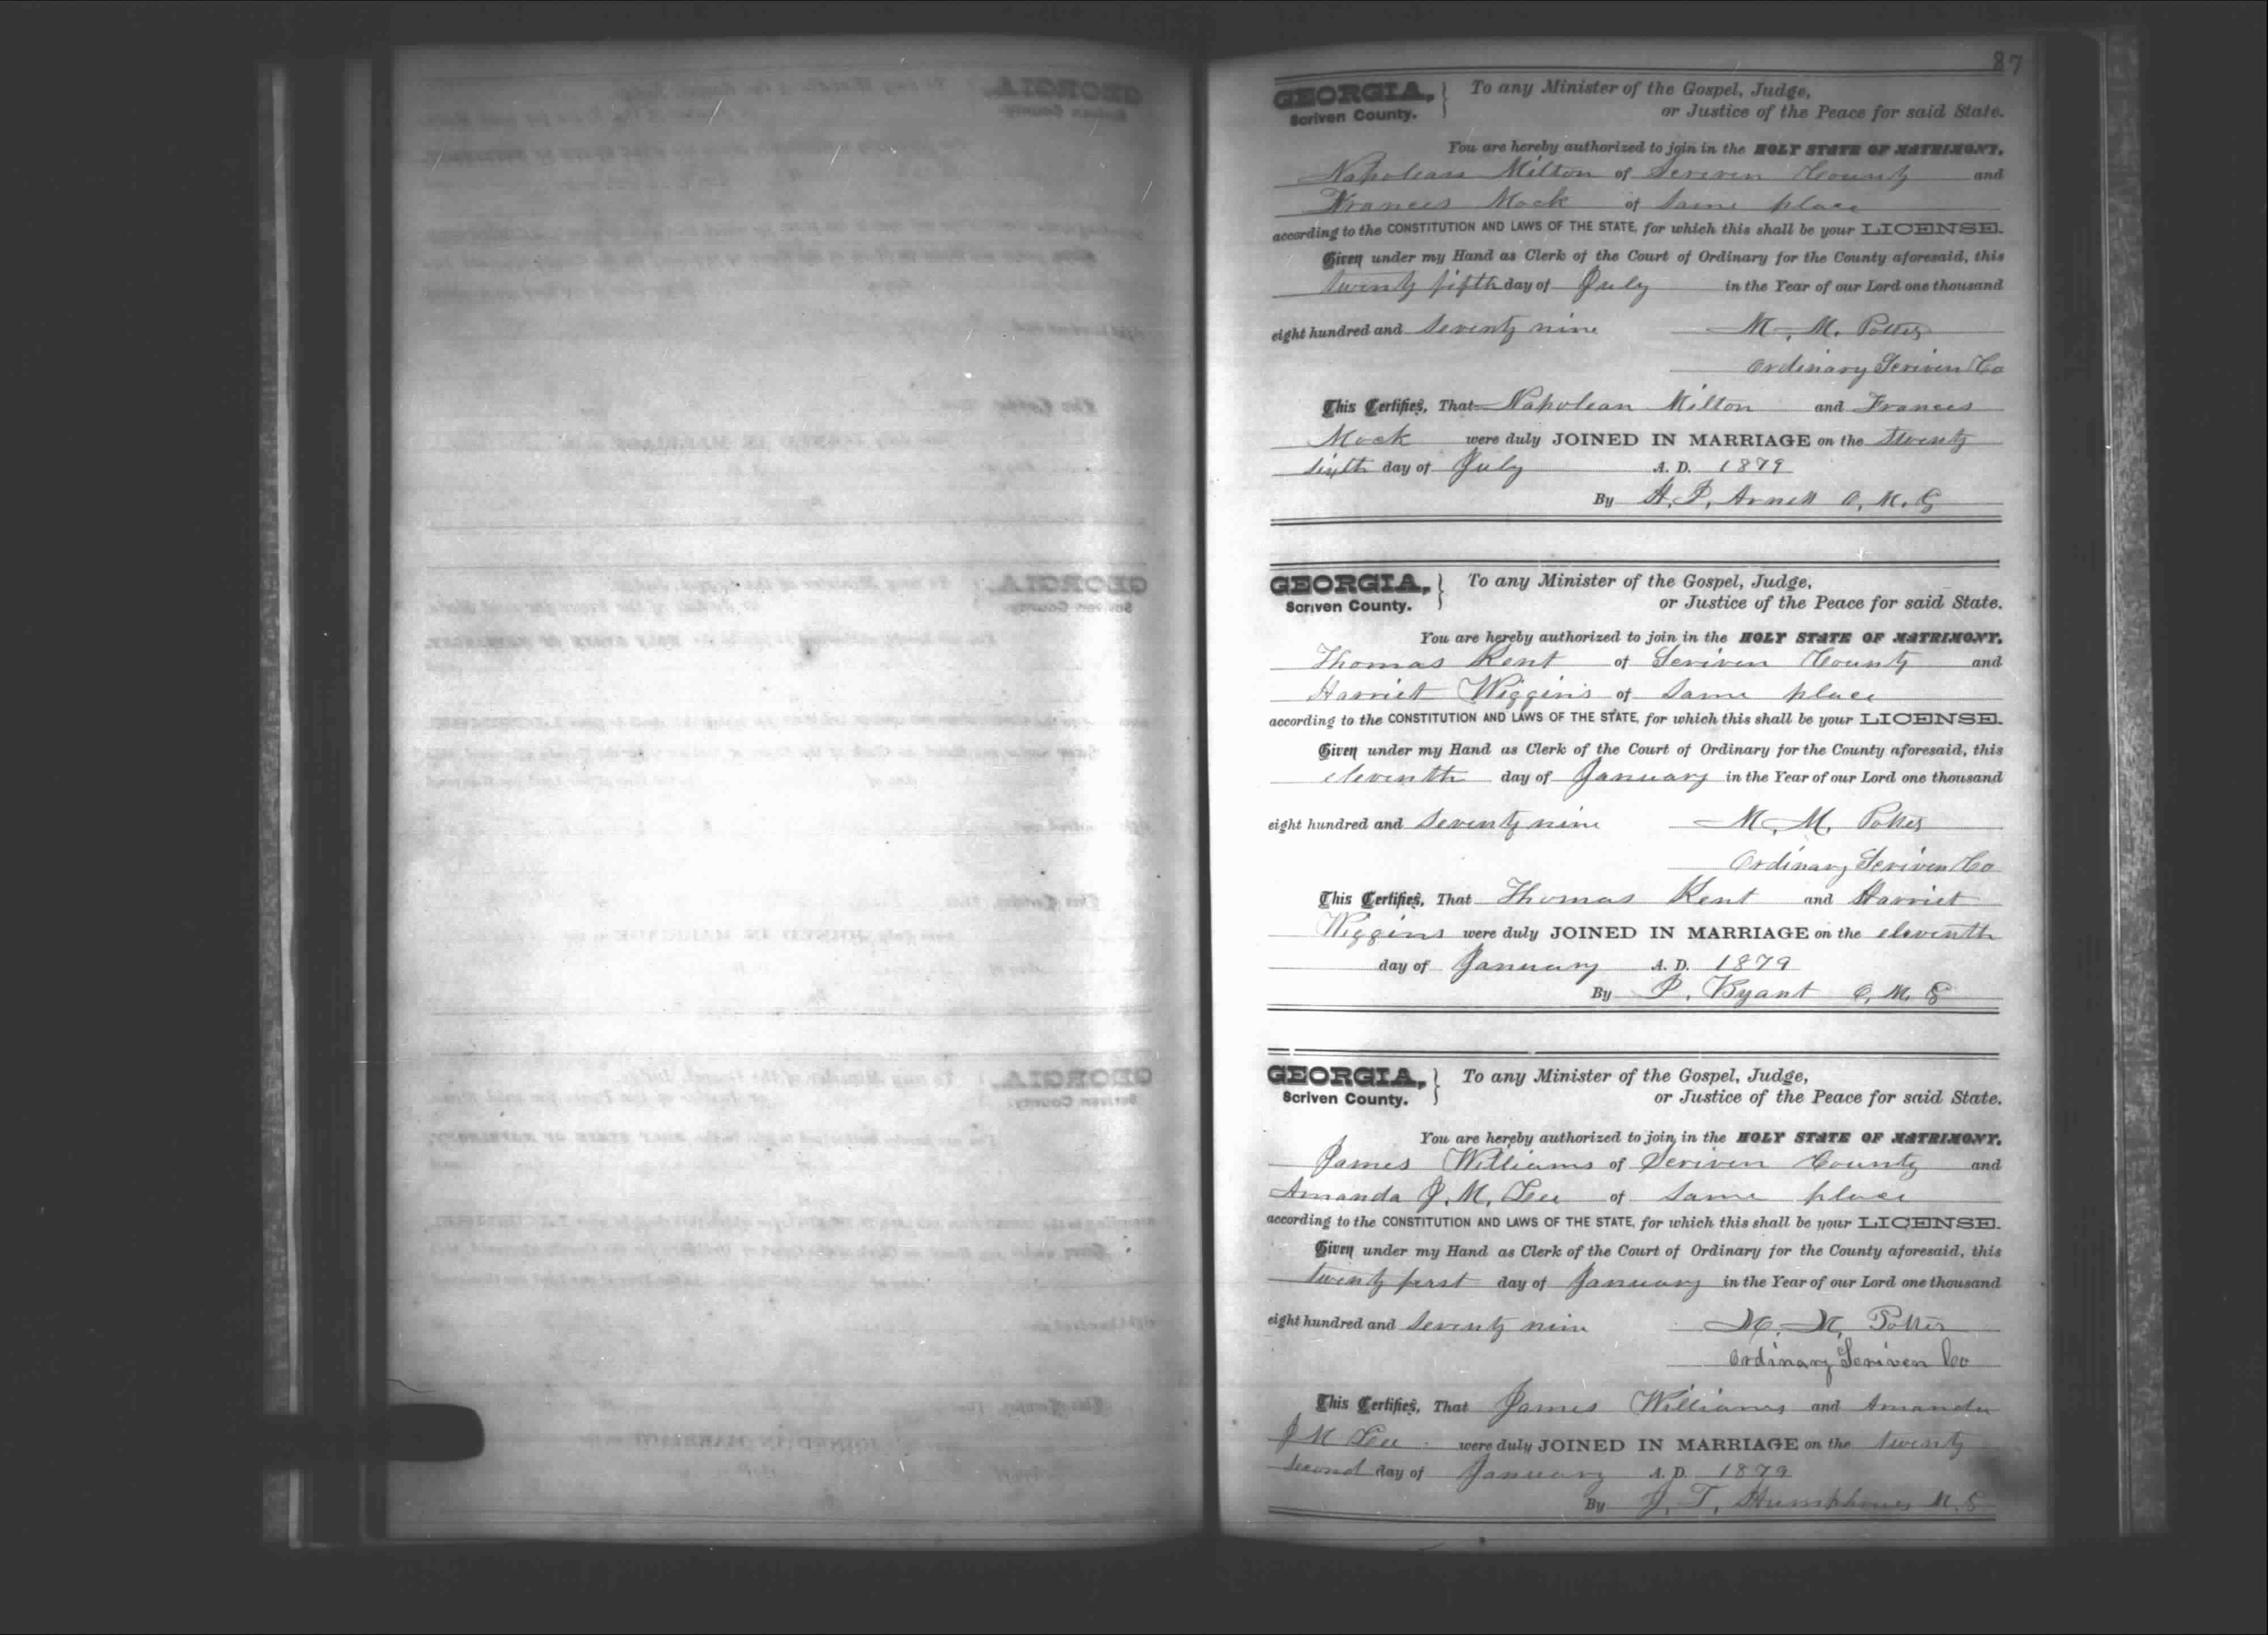 87
GEORGIA, } To any Minister of the Gospel, Judge,
Scriven County. or Justice of the Peace for said State.
You are hereby authorized to join in the HOLY STATE OF MATRIMONY,
Napolean Milton of Scriven County and
Frances Mock of Same place
according to the CONSTITUTION AND LAWS OF THE STATE, for which this shall be your LICENSE.
Given under my Hand as Clerk of the Court of Ordinary for the County aforesaid, this
twenty fifth day of July in the Year of our Lord one thousand
eight hundred and Seventy nine M. M. Potter
Ordinary Scriven Co
This Certifies, That Napolean Milton and Frances
Mock were duly JOINED IN MARRIAGE on the twenty
sixth day of July A. D. 1879
By H. P. Arnett O. M. G
GEORGIA, } To any Minister of the Gospel, Judge,
Scriven County. or Justice of the Peace for said State.
You are hereby authorized to join in the HOLY STATE OF MATRIMONY,
Thomas Kent of Scriven County and
Harriet Wiggins of Same place
according to the CONSTITUTION AND LAWS OF THE STATE, for which this shall be your LICENSE.
Given under my Hand as Clerk of the Court of Ordinary for the County aforesaid, this
eleventh day of January in the Year of our Lord one thousand
eight hundred and Seventy nine M. M. Potter
Ordinary Scriven Co
This Certifies, That Thomas Kent and Harriet
Wiggins were duly JOINED IN MARRIAGE on the eleventh
day of January A. D. 1879
By P. Bryant O. M. G
GEORGIA, } To any Minister of the Gospel, Judge,
Scriven County. or Justice of the Peace for said State.
You are hereby authorized to join in the HOLY STATE OF MATRIMONY,
James Williams of Scriven County and
Amanda J. M. Lee of Same place
according to the CONSTITUTION AND LAWS OF THE STATE, for which this shall be your LICENSE.
Given under my Hand as Clerk of the Court of Ordinary for the County aforesaid, this
twenty first day of January in the Year of our Lord one thousand
eight hundred and Seventy nine M. M. Potter
Ordinary Scriven Co
This Certifies, That James Williams and Amanda
J M Lee were duly JOINED IN MARRIAGE on the twenty
second day of January A. D. 1879
By J. T. Humphries M. G